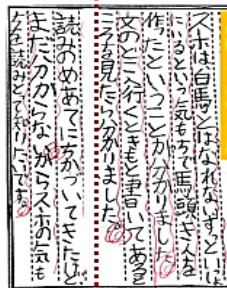 スホは白馬とはなれないずっといっしょ
にいるという気もちで馬頭きんを
作ったということが分かりました。
文のどこへ行くときもと書いてある
ところを見たら分かりました。
読みのめあてに近づいてきたけど
まだ分からないからスホの気も
ちを読みとって知りたいですね。